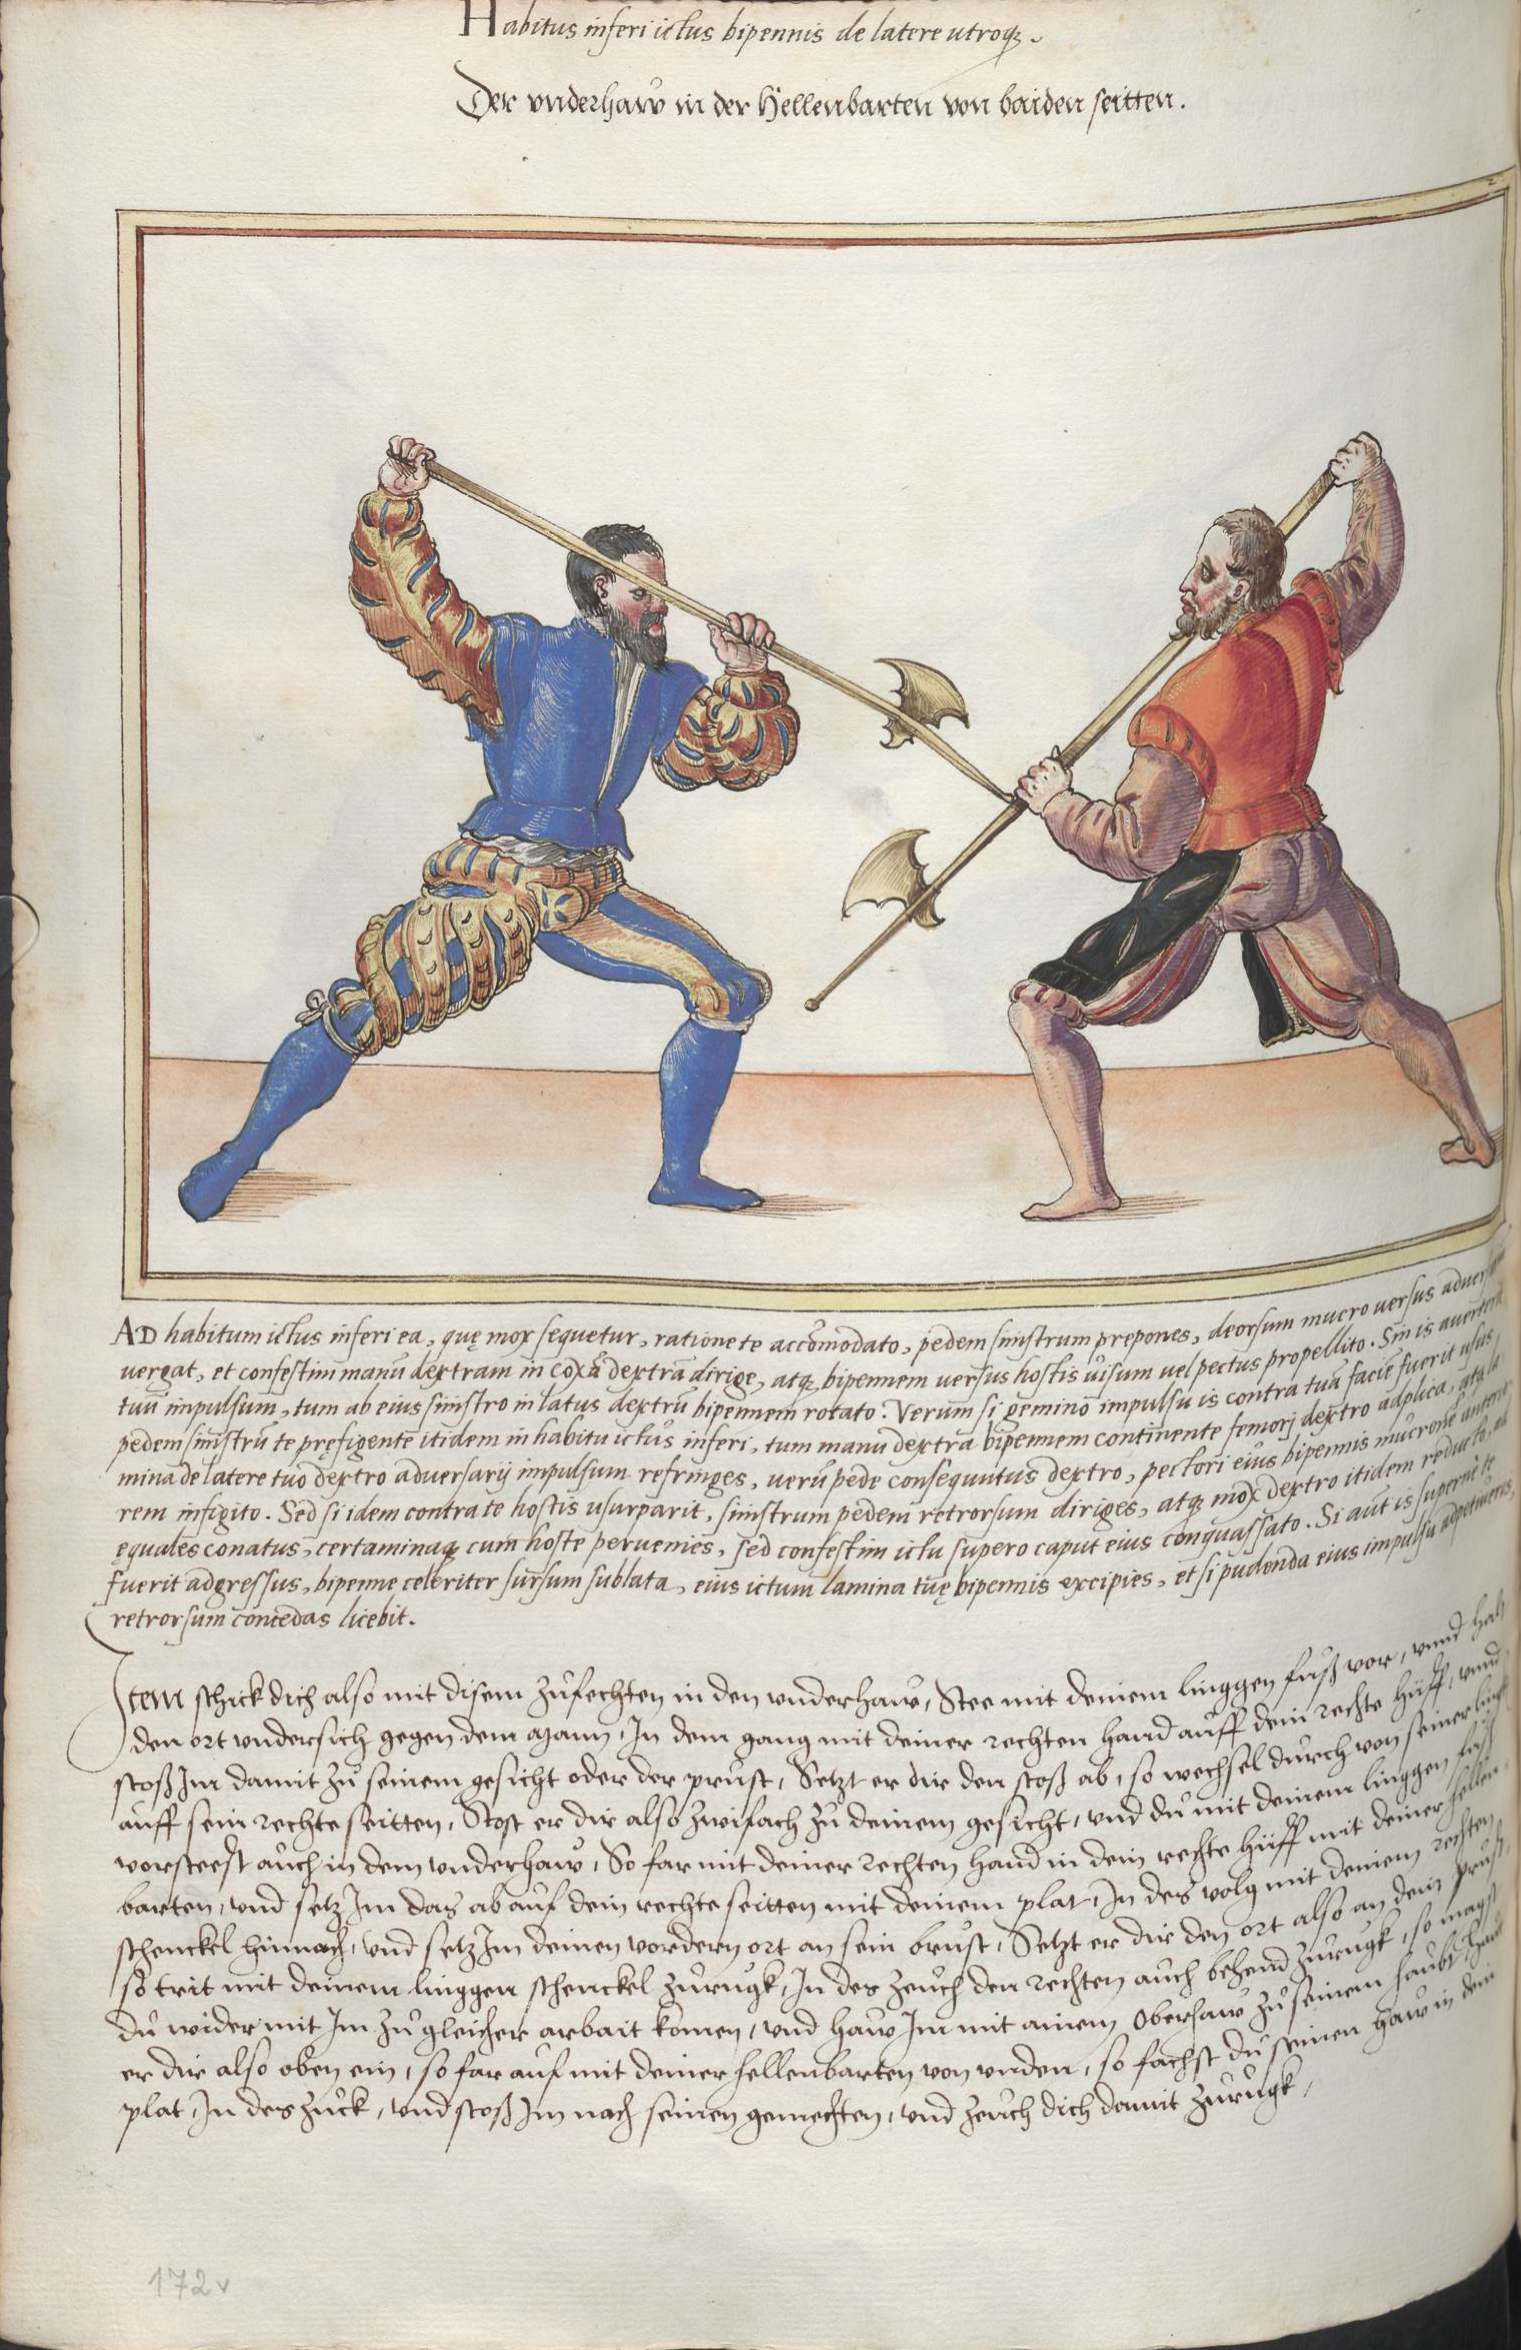 Habitus inferi ictus bipennis de latere utroq.
Der vnderhaw in der Hellenbarten von baiden seitten.
AD habitum ictus inferi ea, quę mox sequetur, ratione te accomodato, pedem sinistrum prepones, deorsum mucro versus adversum
vergat, et confestim manũ dextram in coxã dextrã dirige, atq, bipennem versus hostis visum vel pectus propellito. Sin is averterit
tuũ impulsum, tum ab eius sinistro in latus dextrũ bipennem rotato. Verum si gemino impulsu is contra tuã faciẽ fuerit usus,
pedem sinistrũ te pręfigente itidem in habitu ictus inferi, tum manu dextra bipennem continente femori dextro adplica, atq la
mina de latere tuo dextro adversarij impulsum refringes, verũ pede consequutus dextro, pectori eius bipennis mucronẽ anterio
rem infigito. Sed si idem contra te hostis usurparit, sinistrum pedem retrorsum diriges, atq mox dextro itidem reducto, ad
ęquales conatus, certaminaq cum hoste pervenies, sed confestim ictu supero caput eius conquassato. Si aũt is supernè te
fuerit adgressus, bipenne celeriter sursum sublata, eius ictum lamina tuę bipennis excipies, et si pudenda eius impulsu adpetiveris,
retrorsum concedas licebit.
Item schick dich also mit disem zůfechten in den vnderhaw, Stee mit deinem linggen fuß vor, vnnd halt
den ort vndersich gegen dem Mann, In dem gang mit deiner rechten hand auff dein rechte hüff, vnnd
stoß Im damit zů seinem gesicht oder der prust, Setzt er dir den stoß ab, so wechsel durch von seiner lingk
auff sein rechte seitten, Stost er dir also zwifach zů deinem gesicht, vnd du mit deinem linggen fuß
vorsteest auch in dem vnderhaw, So far mit deiner rechten hand in dein rechte hüff mit deiner hellen
barten, vnd setz Im das ab auf dein rechte seitten mit deinem plat, In des volg mit deinem rechten
schenckel hinnach, vnd setz Im deinen vordern ort an sein brust, Setzt er dir den ort also an dein prust,
so trit mit deinem linggen schenckel zurugk, In des zeuch den rechten auch behend zurugk, so magst
du wider mit Im zů gleicher arbait komen, vnd haw Im mit ainem Oberhaw zů seinem haubt, Haut
er dir also oben ein, so far auf mit deiner hellenbarten von vnden, so fachst du seinen haw in dein
plat, In des zuck, vnd stoß Im nach seinen gemechten, vnd zeuch dich damit zurugk,
172v